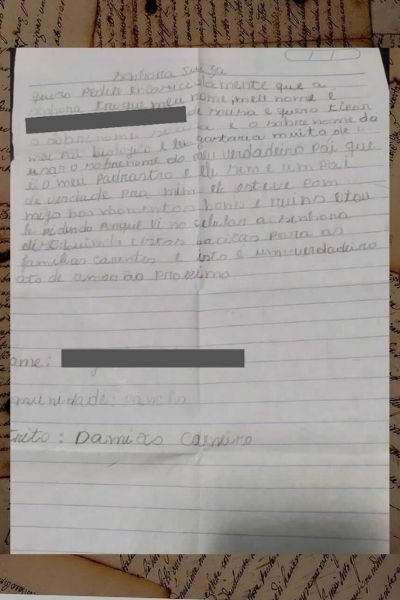 Senhora Juiza
quero Pedir encarecidamente que a
senhora troque meu nome, meu nome e
de souza e quero tirar
o sobrenome souza e o sobrenome do
meu Pai biologico e eu gostaria muito de
usar o sobrenome do meu verdadeiro pai que
e o meu Padrastro e ele sim e um pai
de verdade pra mim ele esteve com
migo nos momentos bons e ruins Estou
le pedindo Porque vi no selular a senhora
distribuindo cestas bacicas para as
familias carentes e isto é um verdadeiro
ato de amor ao Proximo
ome:
munidade: cancla
trito: Damião Carneiro